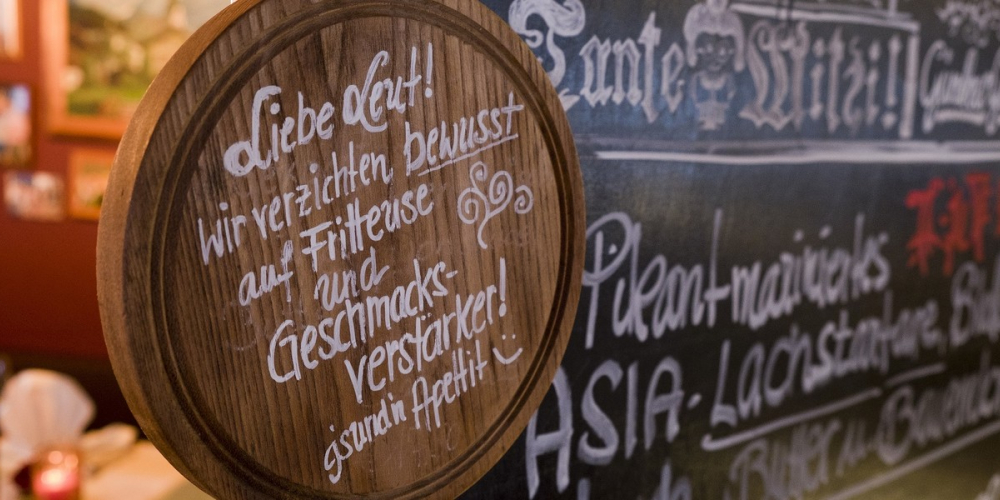 Liebe Leut!
wir verzichten, bewusst
auf Fritteuse
und
Geschmacks-
verstärker!
g'sundn Apettit
Tante Mitzi!
Pikant mariniertes
ASIA-Lachstartare,
Butter u.